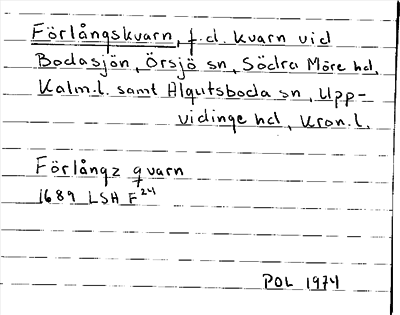 Förlångskvarn, f.d. kvarn vid
Bodasjön, Örsjö sn, Södra Möre hd,
Kalm.l. samt Algutsboda sn, Upp-
vidinge hd, Kron.l.
Förlångz qvarn
1689 LSH F24
POL 1974